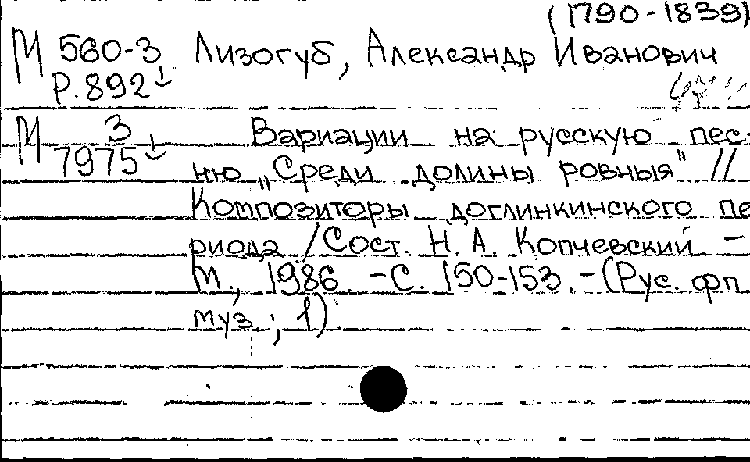 (1790-1839)
М 560-3 Лизогуб, Александр Иванович
Р.892↓
М 3 Вариации на русскую пес-
7975↓ ню „Среди долины ровныя" //
Композиторы доглинкинского пе
риода / Сост. Н. А. Копчевский –
М., 1986. – С. 150-153. – (Рус. фп.
муз.; 1)